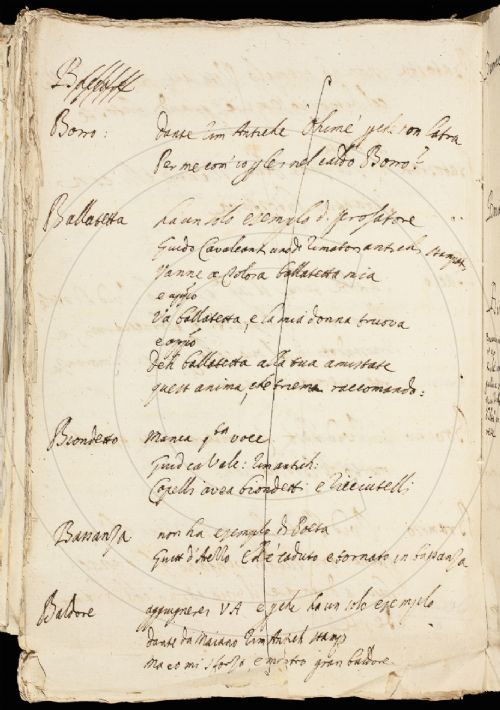 Borro: Dante Rim Antiche Ohimè perché non latra
Per me com'io per lei nel caldo Borro?
Ballatetta ha un solo esempio di prosatore
Guido Cavalcanti uno de Rimatori antichi stampati
Vanne a Tolosa ballatetta mia
e appo
Va ballatetta, e la mia donna truova
e appo
Deh ballatetta alla tua amistate
quest anima, che triema raccomando:
Biondetto Manca qta voce
Guid Caval: Rim antich:
Capelli avea biondetti e ricciutelli
Bassanza non ha esempio di Poeta
Guitt d'Arezzo Ed è caduto e tornato in bassanza
Baldore aggiugnerei VA e perché ha un solo esempio
dante da Maiano Rim Antich stamp
Ma co mi sforzo, e mostro gran baldore